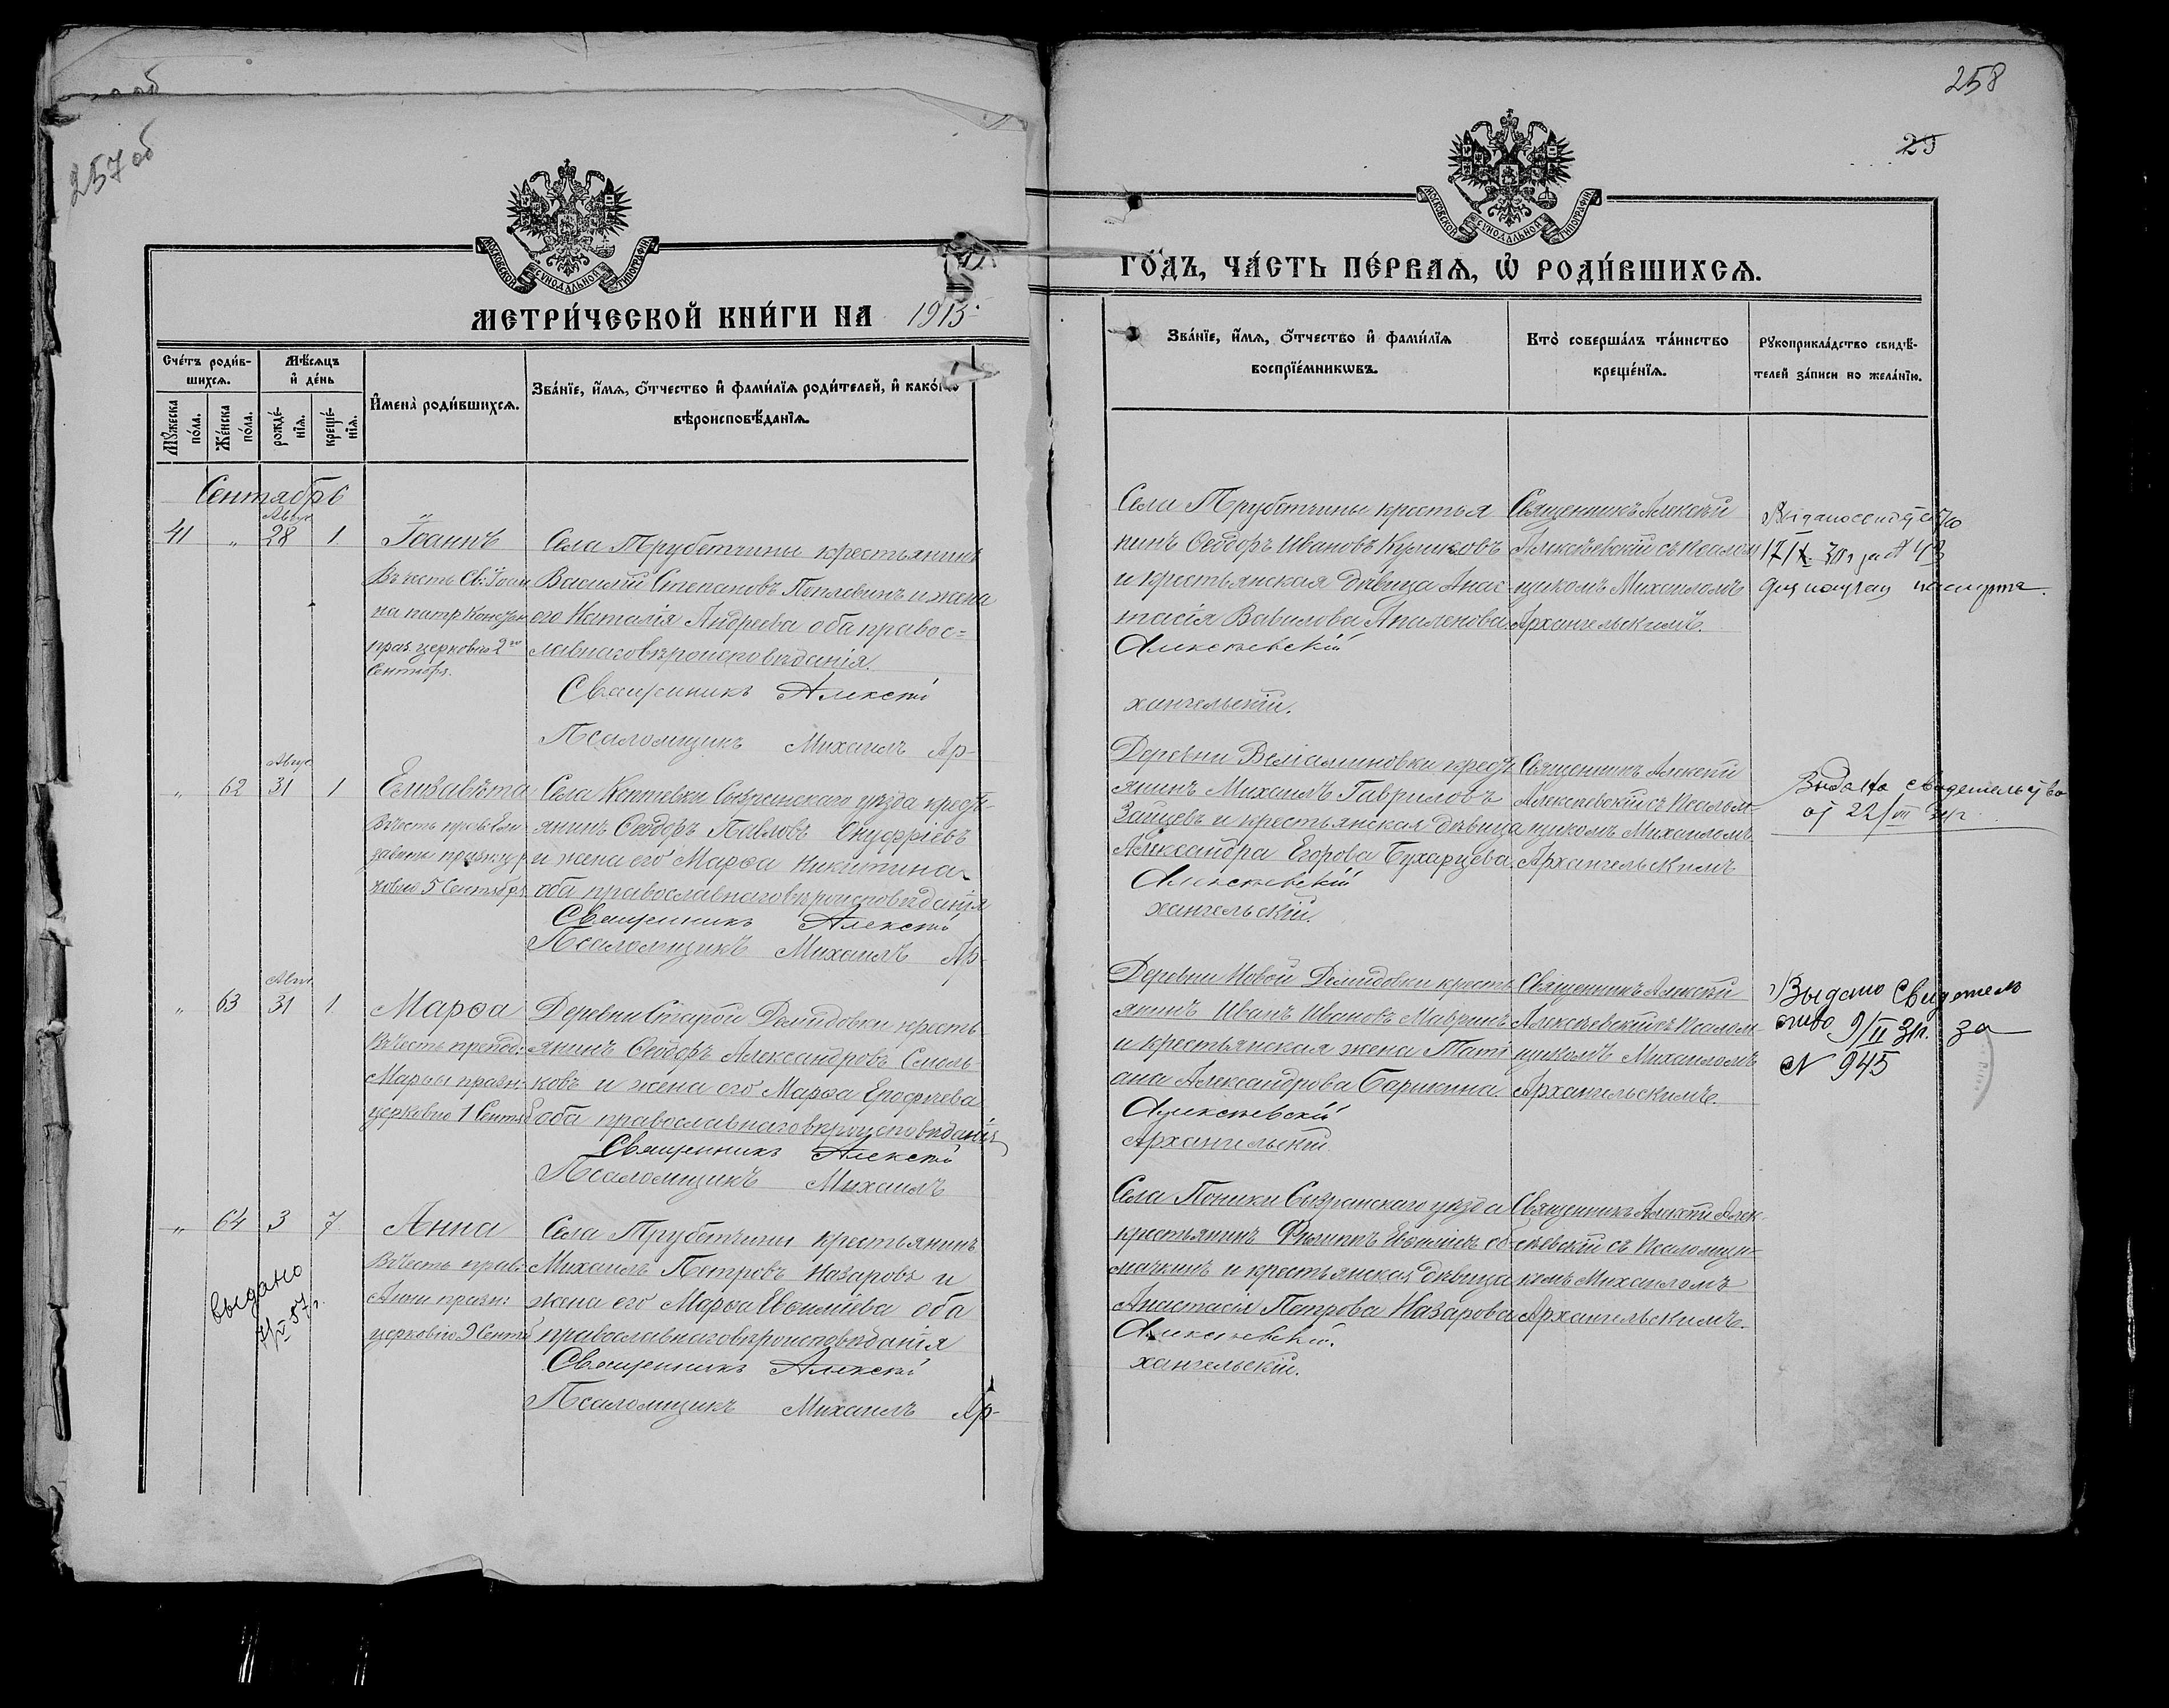 257 об
МОСКОВСКОЙ СУНОДАЛЬНОЙ ТИПОГРАФІИ
МЕТРИ́ЧЕСКОЙ КНИ́ГИ НА 1913
Счéтъ роди́в-
шихсѧ.
Мѣ́сѧцъ
и҆ дéнь
Мꙋ́жеска
пóла.
Жéнска
пóла.
рождé-
нїѧ.
крещé-
нїѧ.
И҆менà роди́вшихсѧ.
Звáнїе, и҆́мѧ, ѻ҆́тчество и҆ фами́лїѧ роди́телей, и҆ какóгѡ
вѣроисповѣ́данїѧ.
Сентябрь
Авгус
41 " 28 1.
Іоаннъ
Въ честь Св: Іоан
на патр Констан
праз. церковію 2го
Сентября.
Села Трубетчины крестьянинъ
Василій Степановъ Поплевинъ и жена
его Наталія Андреева оба правос=
лавнаго вѣроисповѣданія.
Священникъ Алексѣй
Псаломщикъ Михаилъ Ар-
Авгус
" 62 31 1
Елизавѣта
Въ честь прав. Ели
заветы праз цер
ковію 5 Сентября
Села Коптевки Сызранскаго уѣзда кресть-
янинъ Ѳеодоръ Павловъ Онуфріевъ
и жена его Марѳа Никитина
оба православнаго вѣроисповѣданія
Священникъ Алексѣй
Псаломщикъ Михаилъ Ар-
Авгус
" 63 31 1
Марѳа
Въ честь препод:
Марѳы празн:
церковію 1 Сентяб
Деревни Старой Демидовки кресть
янинъ Ѳеодоръ Александровъ Смоль-
ковъ и жена его Марѳа Ерофѣева
оба православнаго вѣроисповѣданія
Священникъ Алексѣй
Псаломщикъ Михаилъ
" 64 3 7
Анна
Въ честь прав:
Анны празн:
церковію 9 Сентяб
выдано
Села Трубетчины крестьянинъ
Михаилъ Петровъ Назаровъ и
жена его Марѳа Евсиліева оба
православнаго вѣроисповѣданія
Священникъ Алексѣй
Псаломщикъ Михаилъ Ар-
258
29
МОСКОВСКОЙ СУНОДАЛЬНОЙ ТИПОГРАФІИ
ГО́ДЪ, ЧА́СТЬ ПЕ́РВАѦ, Ѽ РОДИ́ВШИХСѦ.
Звáнїе, и҆́мѧ, ѻ҆́тчество и҆ фами́лїѧ
воспрїéмникѡвъ.
Ктò совершáлъ тáинство
крещéнїѧ.
Рꙋкоприклáдство свидѣ́-
телей зáписи по желáнїю.
Села Трубетчины крестья
нинъ Ѳеодоръ Ивановъ Куликовъ
и крестьянская дѣвица Анас-
тасія Вавилова Апаленова
Алексѣевскій
хангельскій.
Священникъ Алексѣй
Алексѣевскій съ Псалом
щикомъ Михаиломъ
Архангельскимъ.
Выдано свид
17/IX 31г за № 43
для получен паспорта.
Деревни Веліаминовки крест
янинъ Михаилъ Гавриловъ
Зайцевъ и крестьянская дѣвица
Александра Егорова Бухарцева.
Алексѣевскій
хангельскій.
Священникъ Алексѣй
Алексѣевскій съ Псалом-
щикомъ Михаиломъ
Архангельскимъ
Выдано свидетельство
от 22/VII 31г
Деревни Новой Демидовки кресть
янинъ Иванъ Ивановъ Мавринъ
и крестьянская жена Тати
ана Александрова Барикина.
Алексѣевскій
Архангельскій.
Священникъ Алексѣй
Алексѣевскій съ Псалом-
щикомъ Михаиломъ
Архангельскимъ.
Выдано Свидетель
ство 9/II 31г. за
№ 945
Села Поники Сызранскаго уѣзда
крестьянинъ Филиппъ
и крестьянская дѣвица
Анастасія Петрова Назарова
Алексѣевскій.
хангельскій.
Священникъ Алексѣй Алек-
сѣевскій съ Псаломщи-
комъ Михаиломъ
Архангельскимъ.